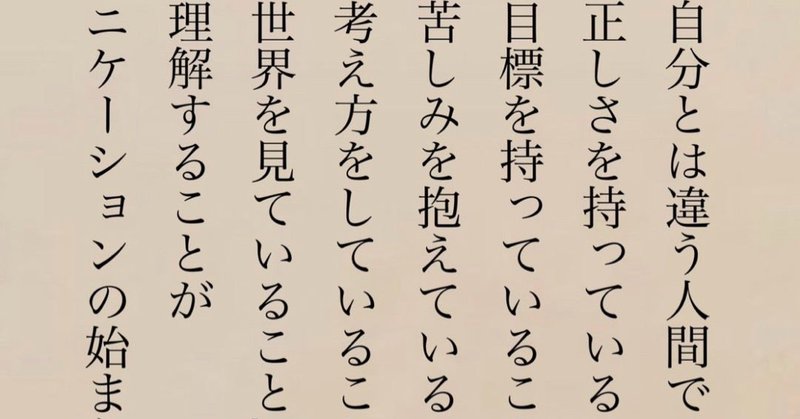 自分とは違う人間で
正しさを持っている
目標を持っているこ
苦しみを抱えている
考え方をしているこ
世界を見ていること
理解することが
ニケーションの始ま